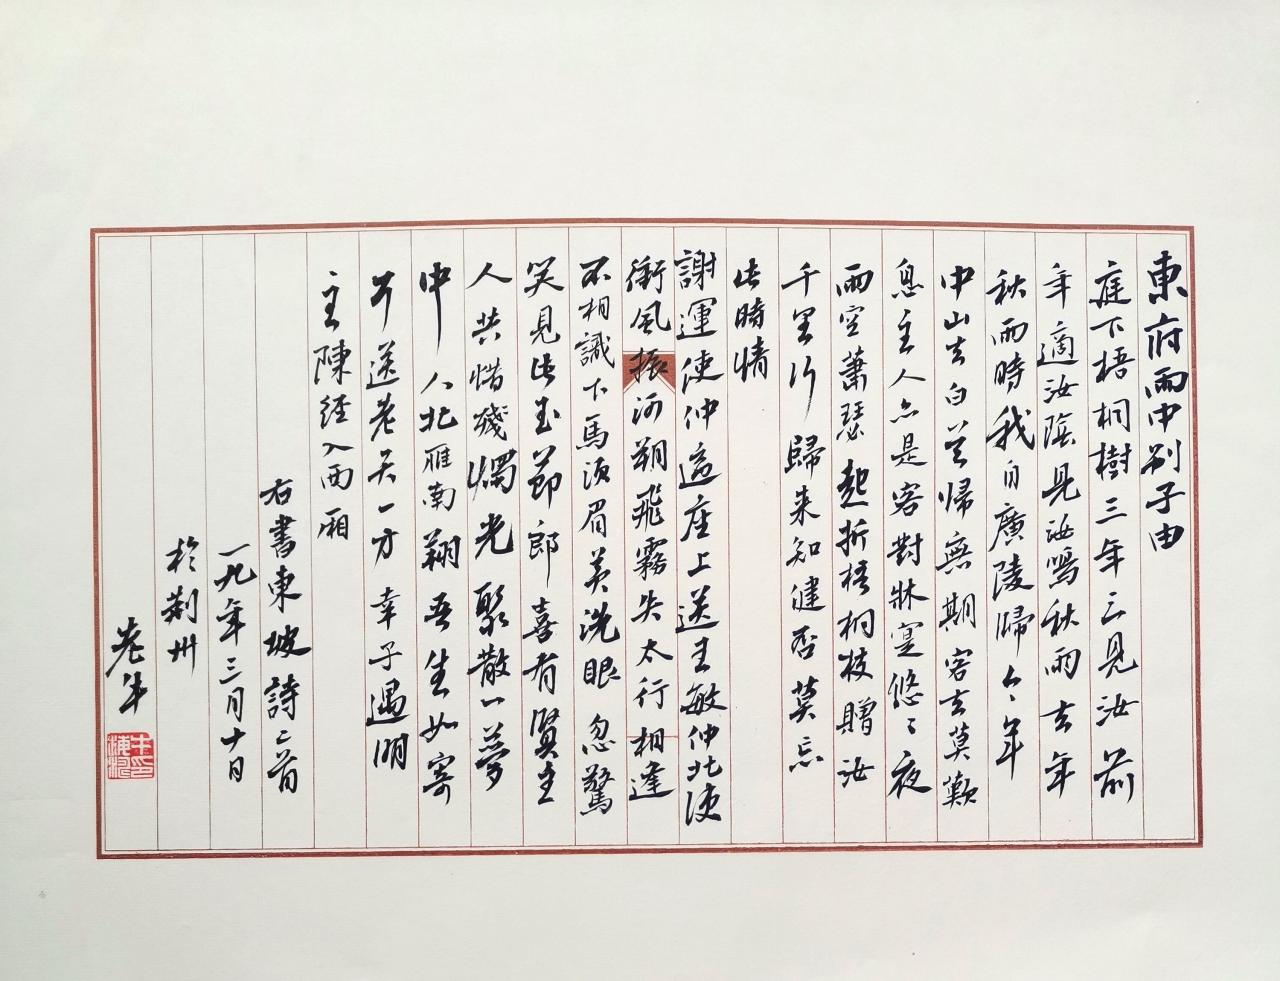 東府雨中别子由
庭下梧桐樹三年三見汝前
年適汝陰見汝鳴秋雨去年
秋雨時我自廣陵歸今年
中山去白首歸無期客去莫歎
息主人亦是客對牀定悠悠夜
雨空蕭瑟起折梧桐枝贈汝
千里行歸来知健否莫忘
此時情
謝運使仲適座上送王敏仲北使
衝風振河朔飛霧失太行相逢
不相識下馬須眉黄洗眼忽驚
笑見此玉節郎喜有賢主
人共惜殘燭光聚散一夢
中人北雁南翔吾生如寄
耳送老天一方幸子遇明
主陳經入西厢
右書東坡詩二首
一九年三月十日
於荆州
老牛